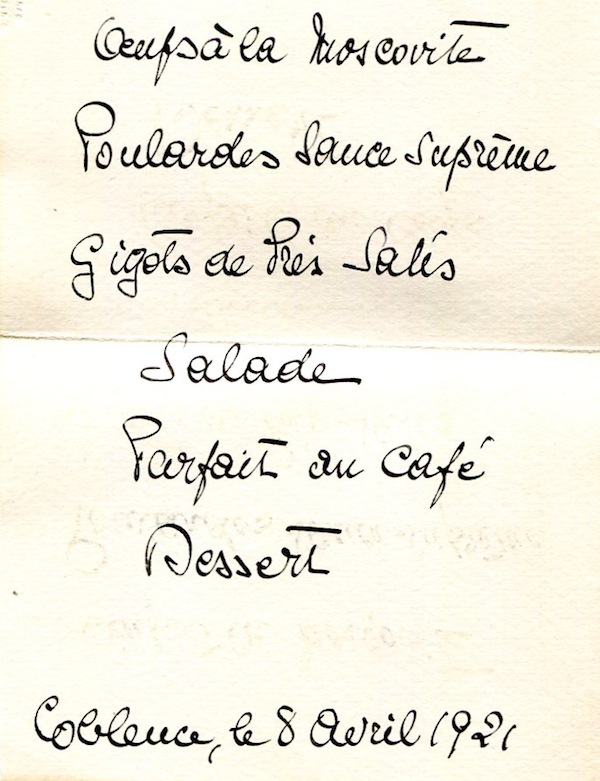 Œufs à la Moscovite
Poulardes Sauce Suprême
Gigots de Prés Salés
Salade
Parfait au Café
Dessert
Coblence, le 8 Avril 1921